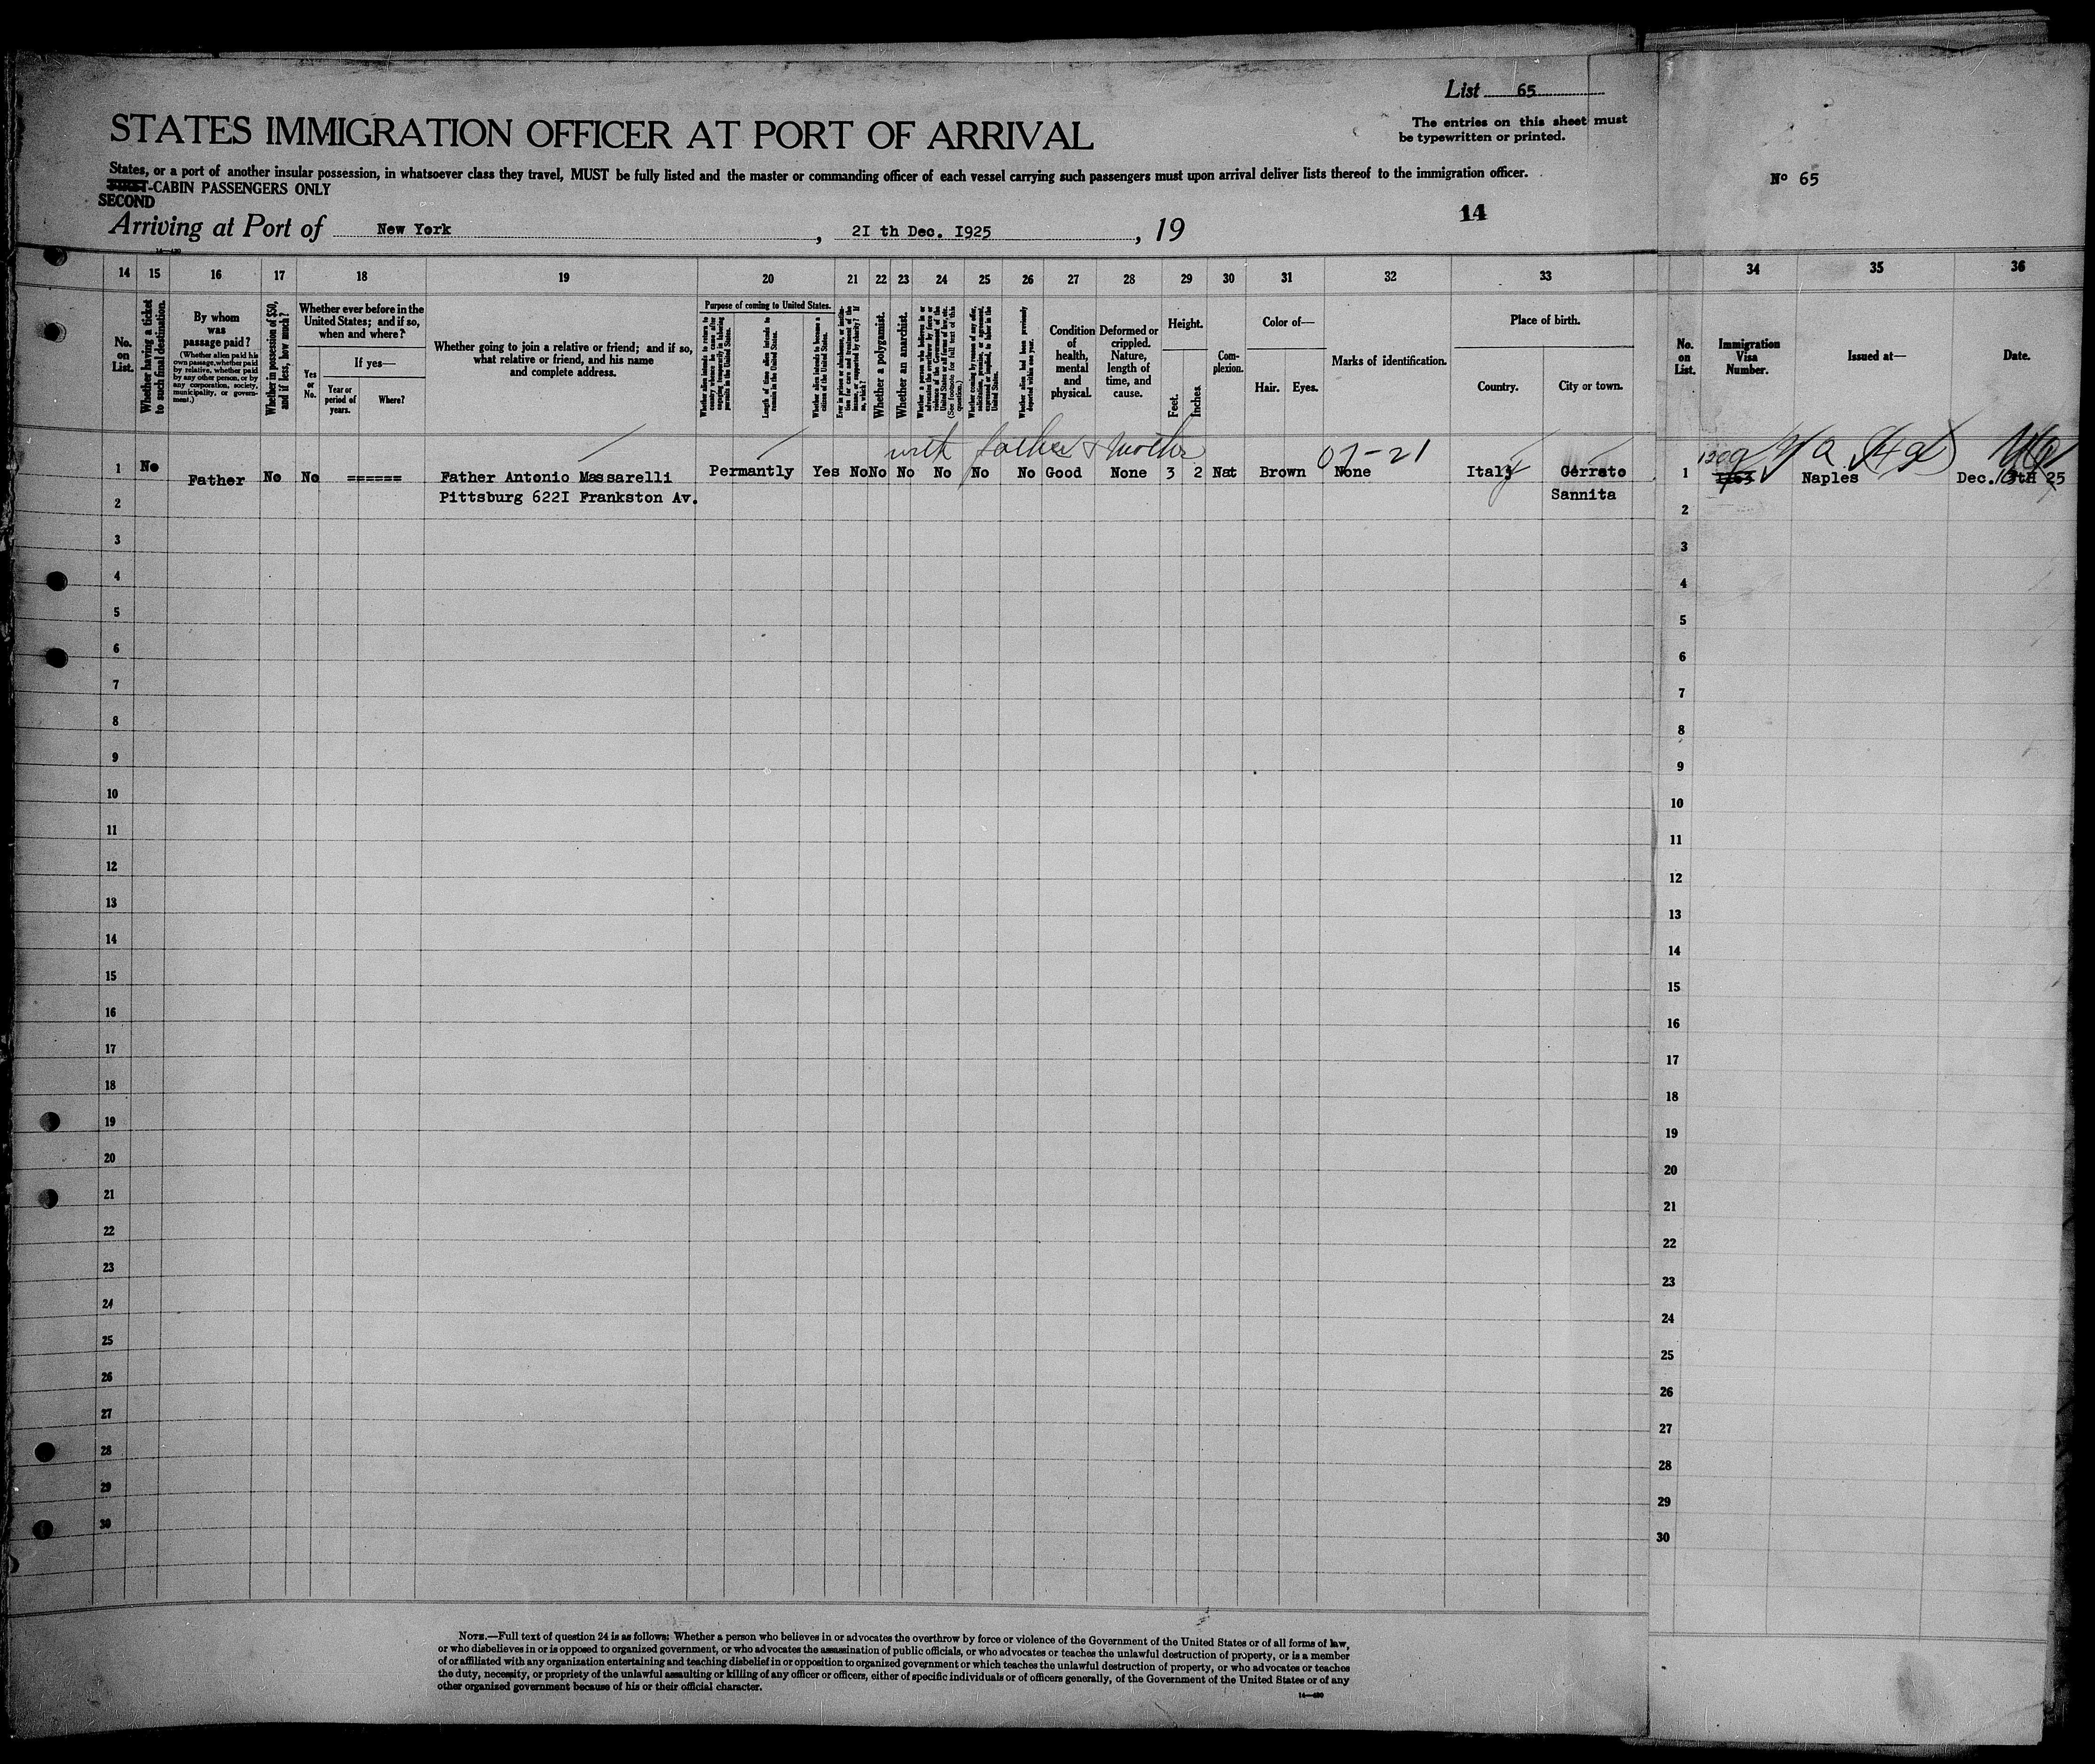 List 65
STATES IMMIGRATION OFFICER AT PORT OF ARRIVAL
The entries on this sheet must
be typewritten or printed.
States, or a port of another insular possession, in whatsoever class they travel, MUST be fully listed and the master or commanding officer of each vessel carrying such passengers must upon arrival deliver lists thereof to the immigration officer.
FIRST-CABIN PASSENGERS ONLY
SECOND
No 65
14
Arriving at Port of New York, 2I th Dec. I925, 19
14 15 16 17 18 19 20 21 22 23 24 25 26 27 28 29 30 31 32 33 34 35 36
No. on List.
Whether having a ticket to such final destination.
By whom was passage paid?
(Whether alien paid his own passage, whether paid by relative, whether paid by any other person, or by any corporation, society, municipality, or government.)
Whether in possession of $50, and if less, how much?
Whether ever before in the United States; and if so, when and where?
Yes or No.
If yes—
Year or period of years.
Where?
Whether going to join a relative or friend; and if so, what relative or friend, and his name and complete address.
Purpose of coming to United States.
Whether alien intends to return to country whence he came after engaging temporarily in laboring pursuits in the United States.
Length of time alien intends to remain in the United States.
Whether alien intends to become a citizen of the United States.
Ever in prison or almshouse, or institution for care and treatment of the insane, or supported by charity? If so, which?
Whether a polygamist.
Whether an anarchist.
Whether a person who believes in or advocates the overthrow by force or violence of the Government of the United States or all forms of law, etc. (See footnote for full text of this question.)
Whether coming by reason of any offer, solicitation, promise, or agreement, expressed or implied, to labor in the United States.
Whether alien had been previously deported within one year.
Condition of health, mental and physical.
Deformed or crippled. Nature, length of time, and cause.
Height.
Feet. Inches.
Complexion.
Color of—
Hair. Eyes.
Marks of identification.
Place of birth.
Country. City or town.
No. on List.
Immigration Visa Number.
Issued at—
Date.
with father & mother
07-21
1 No Father No No ====== Father Antonio Massarelli Permantly Yes No No No No No No Good None 3 2 Nat Brown None Italy Cerreto 1 Naples Dec.
2 Pittsburg 622I Frankston Av. Sannita 2
3 3
4 4
5 5
6 6
7 7
8 8
9 9
10 10
11 11
12 12
13 13
14 14
15 15
16 16
17 17
18 18
19 19
20 20
21 21
22 22
23 23
24 24
25 25
26 26
27 27
28 28
29 29
30 30
NOTE.—Full text of question 24 is as follows: Whether a person who believes in or advocates the overthrow by force or violence of the Government of the United States or of all forms of law,
or who disbelieves in or is opposed to organized government, or who advocates the assassination of public officials, or who advocates or teaches the unlawful destruction of property, or is a member
of or affiliated with any organization entertaining and teaching disbelief in or opposition to organized government or which teaches the unlawful destruction of property, or who advocates or teaches
the duty, necessity, or propriety of the unlawful assaulting or killing of any officer or officers, either of specific individuals or of officers generally, of the Government of the United States or of any
other organized government because of his or their official character.